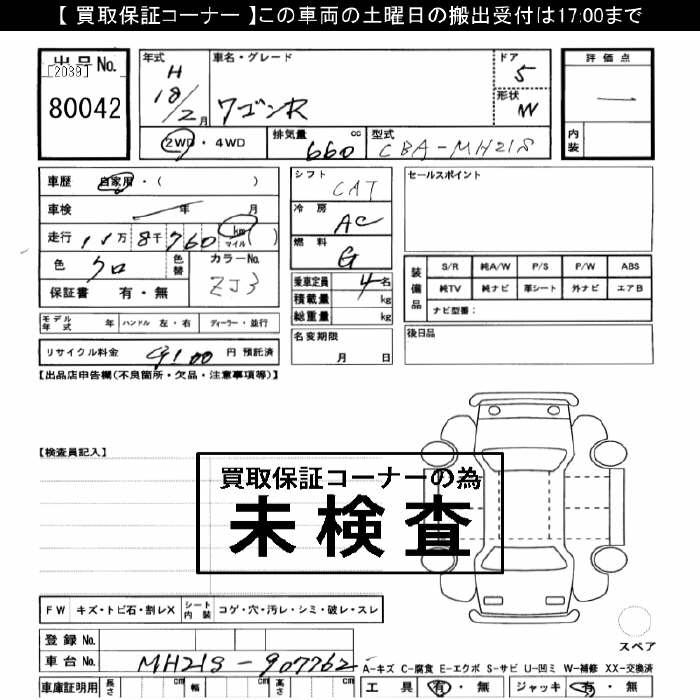 【 買取保証コーナー 】この車両の土曜日の搬出受付は17:00まで
出品No.
[2039]
80042
年式
H
18/2月
車名・グレード
ワゴンR
ドア
5
形状
W
評価点
—
内装
2WD ・ 4WD
排気量 660 cc
型式
CBA-MH21S
車歴 自家用・( )
車検 年 月
走行 11万 8千 760 km マイル ( )
色 クロ
色替
カラーNo.
ZJ3
保証書 有・無
シフト
CAT
冷房
AC
燃料
G
乗車定員 4名
積載量 kg
総重量 kg
セールスポイント
装備品
S/R 純A/W P/S P/W ABS
純TV 純ナビ 革シート 外ナビ エアB
ナビ型番:
モデル年式 年 ハンドル 左・右 ディーラー・並行
名変期限
月 日
後日品
リサイクル料金 9100 円 預託済
【出品店申告欄(不良箇所・欠品・注意事項等)】
【検査員記入】
買取保証コーナーの為
未検査
FW キズ・トビ石・割レX シート内装 コゲ・穴・汚レ・シミ・破レ・スレ
スペア
登録No.
車台No. MH21S-907762
A-キズ C-腐食 E-エクボ S-サビ U-凹ミ W-補修 XX-交換済
車庫証明用 長さ cm 幅 cm 高さ cm
工具 有・無 ジャッキ 有・無